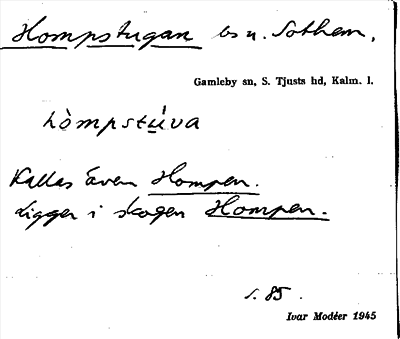 Hompstugan bs u. Sothem.
Gamleby sn, S. Tjusts hd, Kalm. l.
hòmpstú̲va
Kallas även Hompen.
Ligger i skogen Hompen.
s. 85.
Ivar Modéer 1945